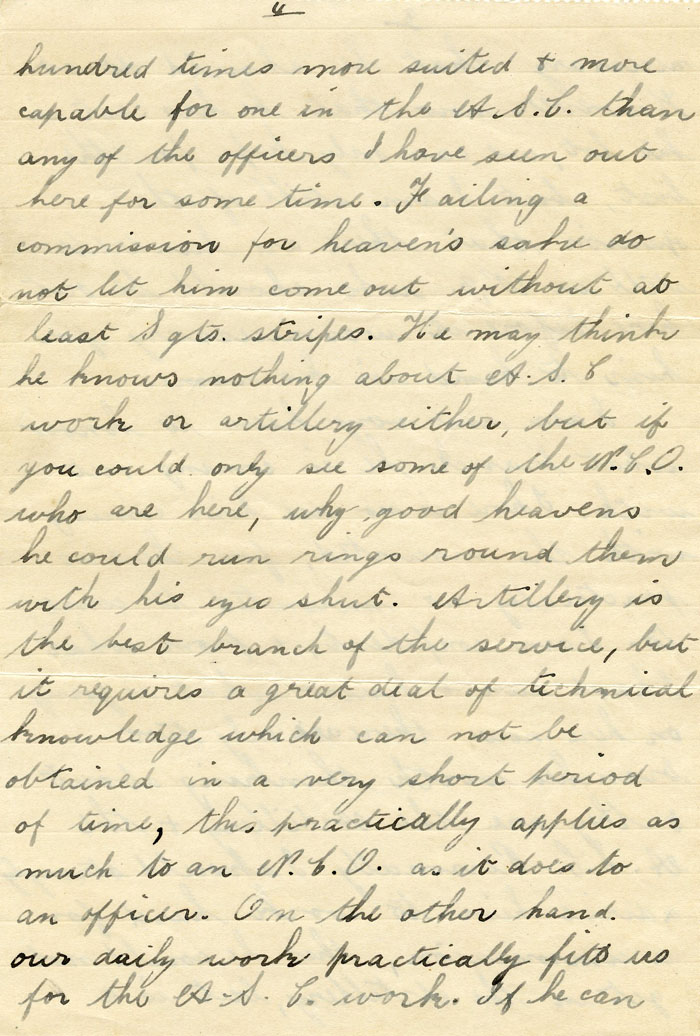 4
hundred times more suited & more
capable for one in the A.S.C. than
any of the officers I have seen out
here for some time. Failing a
commission for heaven's sake do
not let him come out without at
least Sgts. stripes. He may think
he knows nothing about A.S.C
work or artillery either, but if
you could only see some of the N.C.O.
who are here, why good heavens
he could run rings round them
with his eyes shut. Artillery is
the best branch of the service, but
it requires a great deal of technical
knowledge which can not be
obtained in a very short period
of time, this practically applies as
much to an N.C.O. as it does to
an officer. On the other hand.
our daily work practically fits us
for the A.S.C. work. If he can